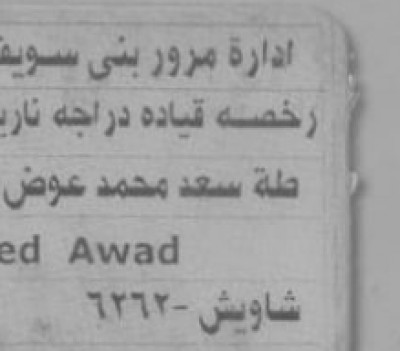 ادارة مرور بنى سويف
رخصه قياده دراجه نارية
طلة سعد محمد عوض
ed Awad
شاويش -٦٢٦٢